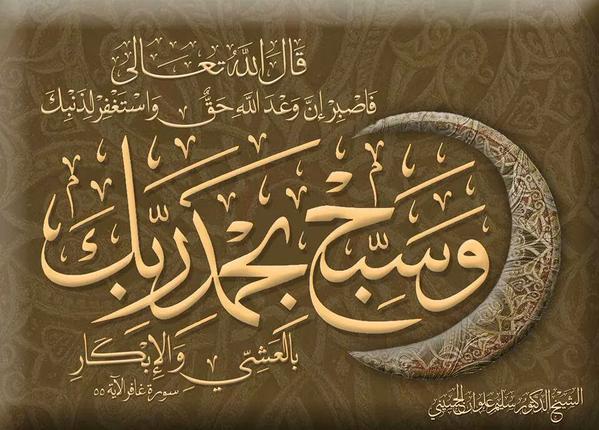 قَالَ اللهُ تَعَالَى
فَاصْبِرْ إِنَّ وَعْدَ اللَّهِ حَقٌّ وَاسْتَغْفِرْ لِذَنْبِكَ
وَسَبِّحْ بِحَمْدِ رَبِّكَ
بِالْعَشِيِّ وَالْإِبْكَارِ
سورة غافر الآية ٥٥
الشيخ الدكتور سليم علوان الحسيني